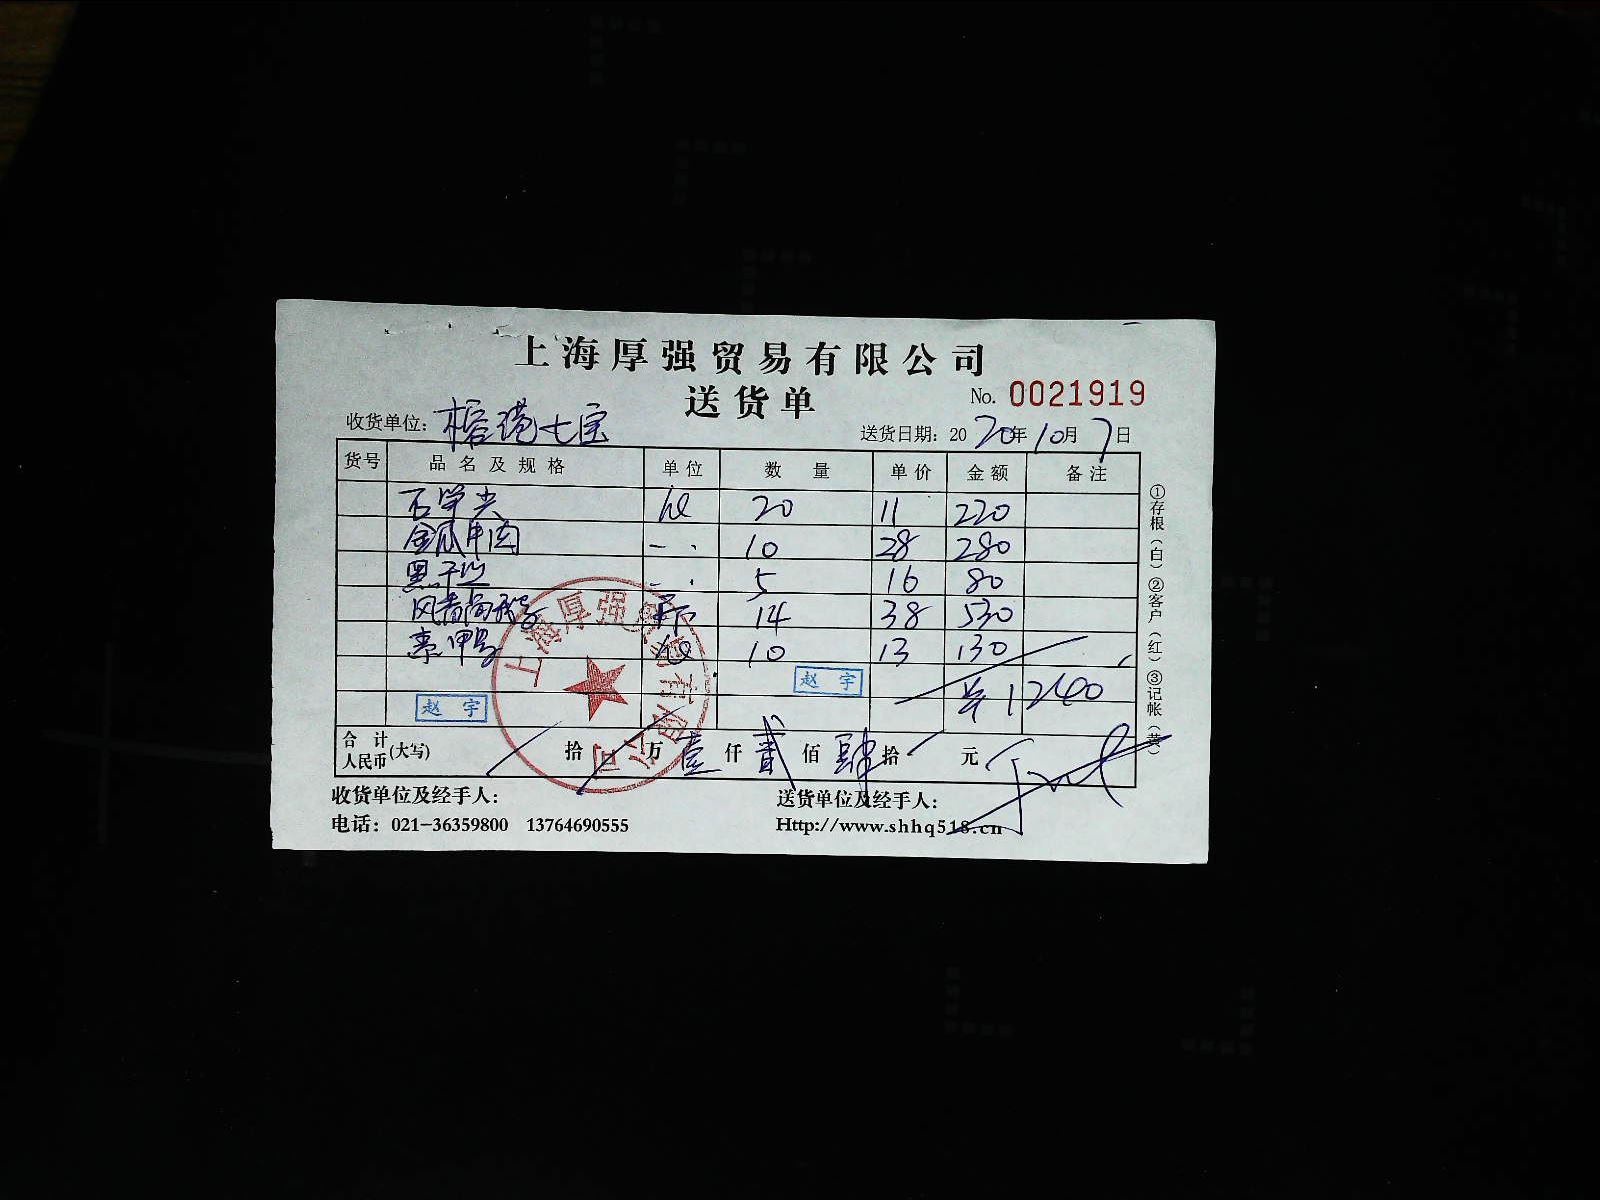 上海厚强贸易有限公司
送货单
No. 0021919
收货单位：榕港七宝
送货日期：2020年10月7日
货号 品名及规格 单位 数量 单价 金额 备注
20 11 220
金瓜牛肉 10 28 280
5 16 80
14 38 530
素鸭 10 13 130
赵宇
¥1240
赵宇
合计人民币(大写) 拾 万 壹 仟 贰 佰 肆 拾 元
收货单位及经手人：
送货单位及经手人：
电话：021-36359800 13764690555
Http://www.shhq518.cn
①存根（白）②客户（红）③记帐（黄）
上海厚强贸易有限公司